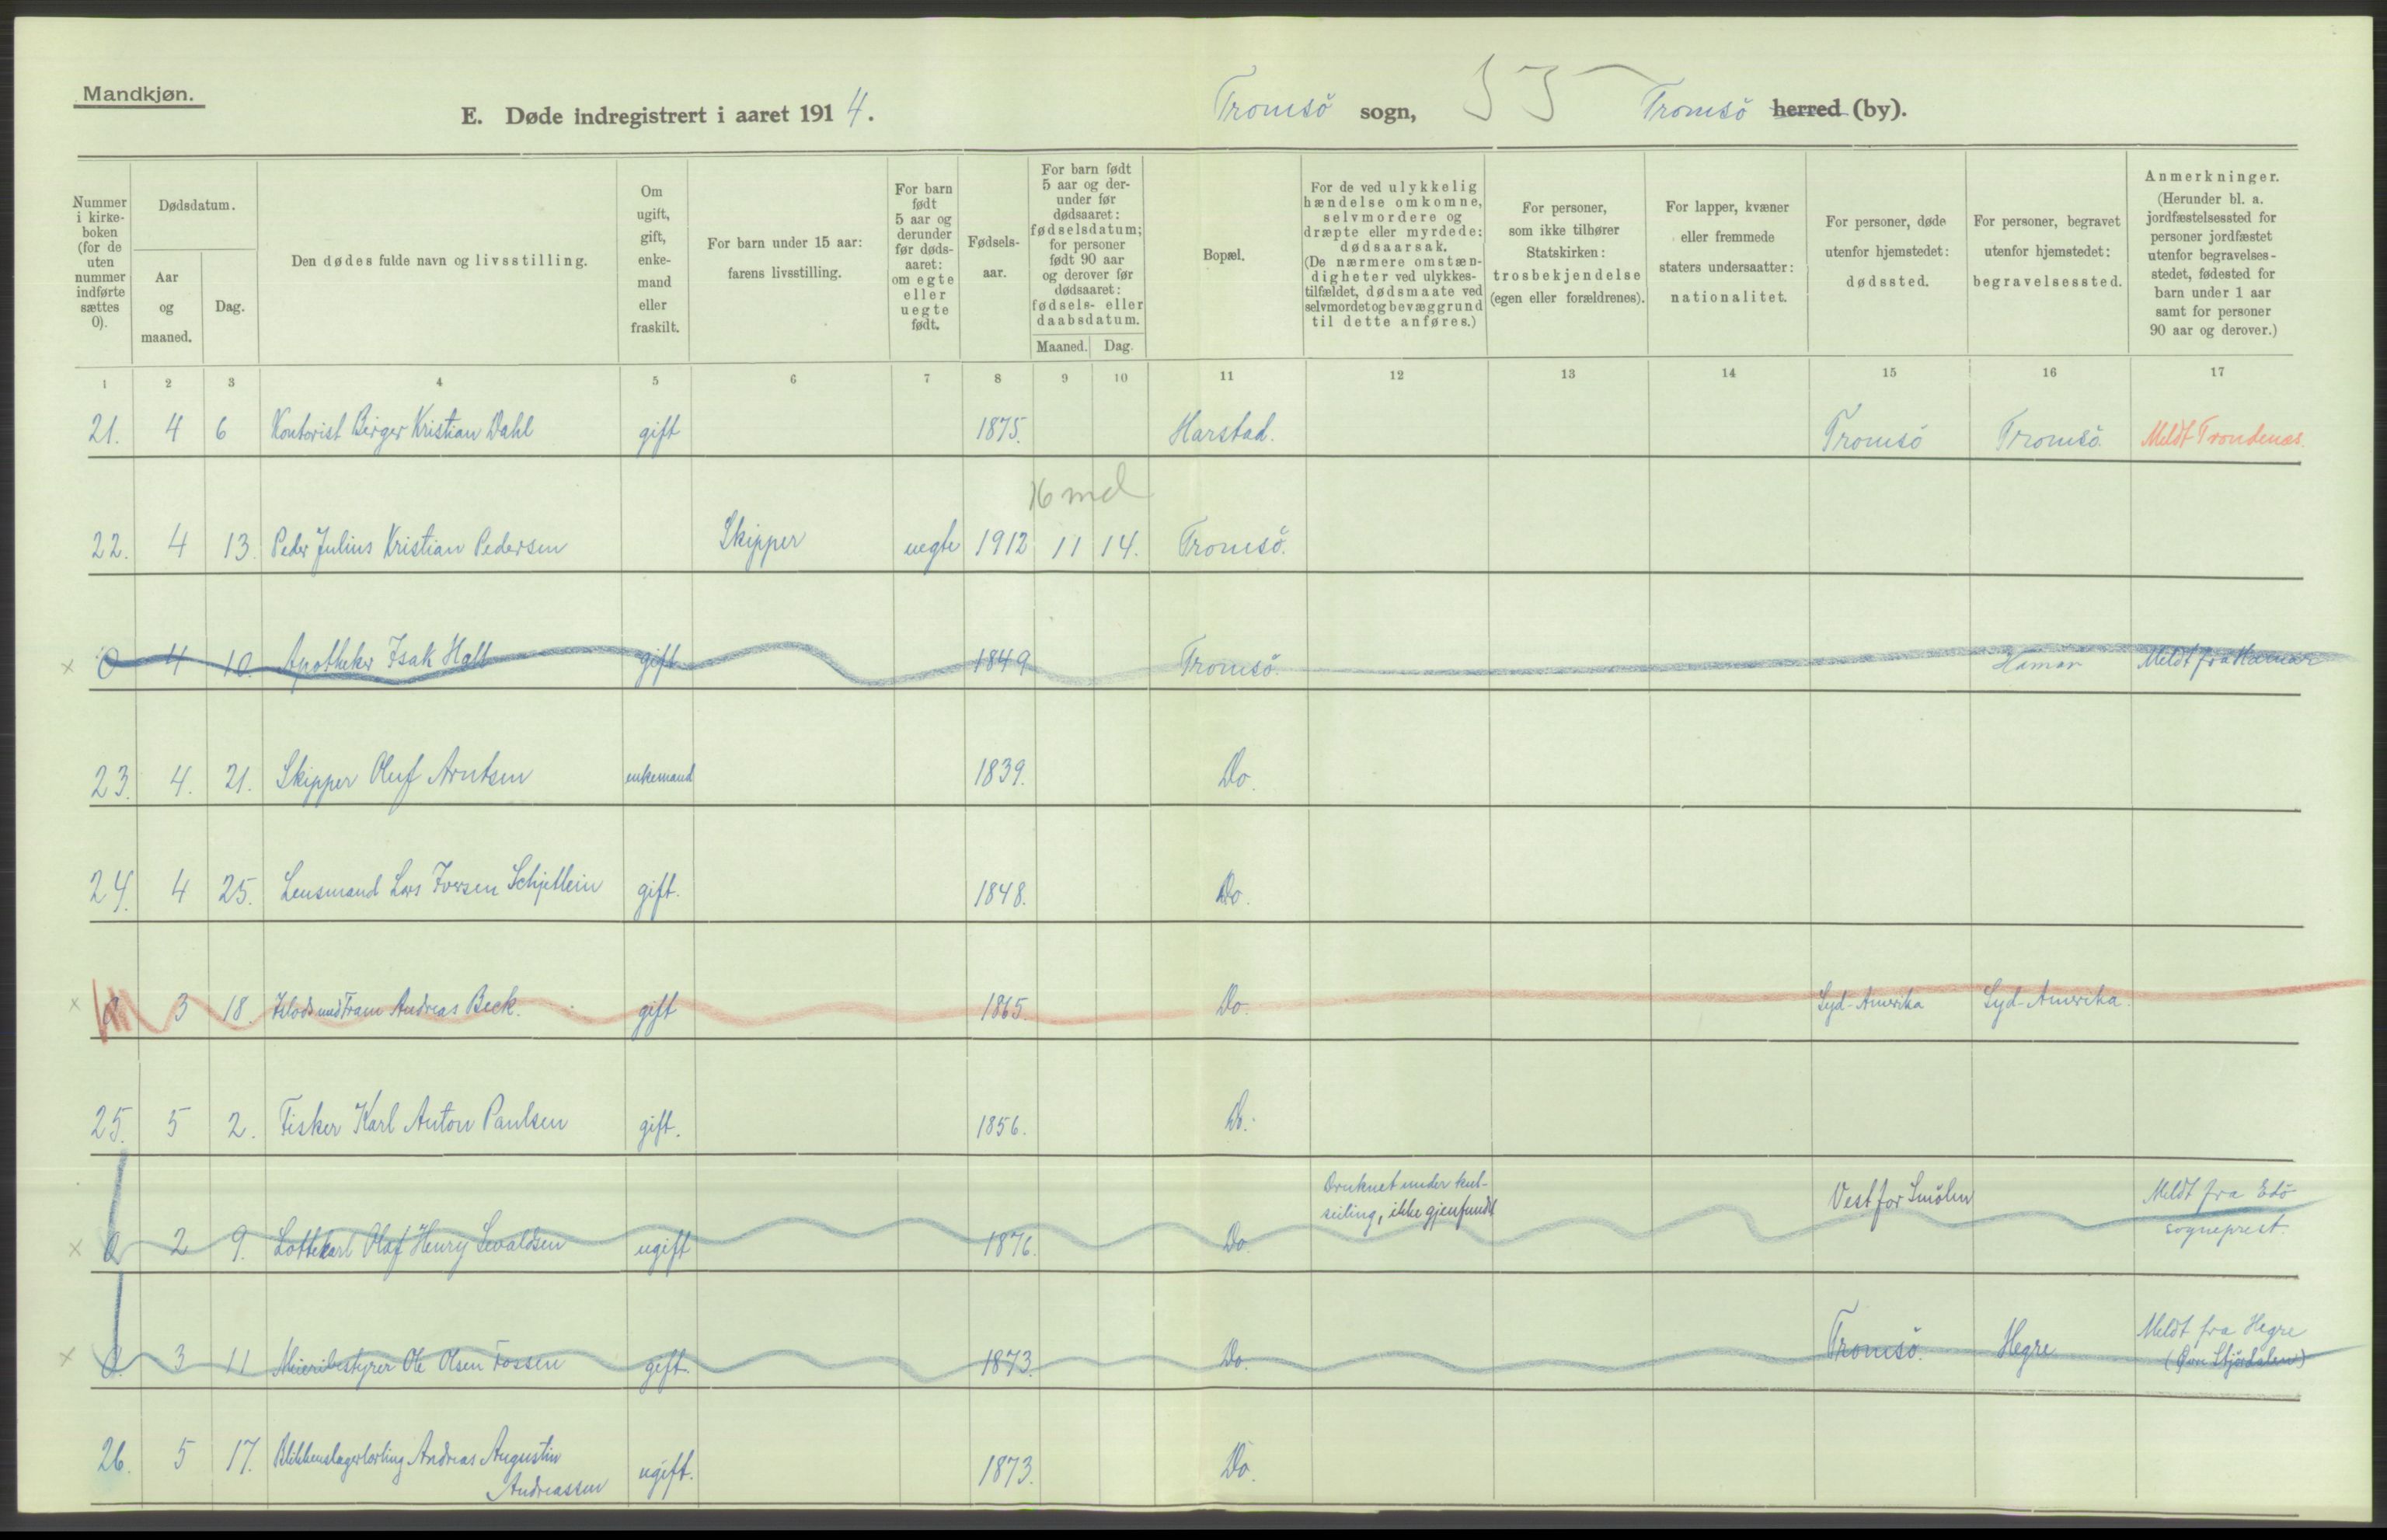 Mandkjøn.
E. Døde indregistrert i aaret 1914.
Tromsö sogn, Tromsö herred (by).
Nummer i kirke- boken (for de uten nummer indførte sættes 0).
Dødsdatum.
Aar og maaned.
Dag.
Den dødes fulde navn og livsstilling.
Om ugift, gift, enke- mand eller fraskilt.
For barn under 15 aar: farens livsstilling.
For barn født 5 aar og derunder før døds- aaret: om egte eller uegte født.
Fødsels- aar.
For barn født 5 aar og der- under før dødsaaret: fødselsdatum; for personer født 90 aar og derover før dødsaaret: fødsels- eller daabsdatum.
Maaned. Dag.
Bopæl.
For de ved ulykkelig hændelse omkomne, selvmordere og dræpte eller myrdede: dødsaarsak. (De nærmere omstæn- digheter ved ulykkes- tilfældet, dødsmaate ved selvmordet og bevæggrund til dette anføres.)
For personer, som ikke tilhører Statskirken: trosbekjendelse (egen eller forældrenes).
For lapper, kvæner eller fremmede staters undersaatter: nationalitet.
For personer, døde utenfor hjemstedet: dødssted.
For personer, begravet utenfor hjemstedet: begravelsessted.
Anmerkninger. (Herunder bl. a. jordfæstelsessted for personer jordfæstet utenfor begravelses- stedet, fødested for barn under 1 aar samt for personer 90 aar og derover.)
1 2 3 4 5 6 7 8 9 10 11 12 13 14 15 16 17
21. 4 6 Kontorist Birger Kristian Dahl gift 1875. Harstad. Tromsö Tromsö. Meldt Trondenæs.
16 md
22. 4 13. Peder Julius Kristian Pedersen Skipper uegte 1912 11 14. Tromsö.
x 0 4 10. Apotheker Isak Hall gift 1849 Tromsö. Hamar Meldt fra Hamar
23. 4. 21. Skipper Oluf Arntsen enkemand 1839. Do.
24. 4 25. Lensmand Lars Iversen Schjetlein gift. 1848. Do.
x 0 3 18. Islods med Fram Andreas Beck. gift 1865. Do. Syd-Amerika Syd-Amerika.
25. 5 2. Fisker Karl Anton Paulsen gift. 1856. Do.
Druknet under kul-
seiling, ikke gjenfundt
Vest for Smölen
Meldt fra Edö
sogneprest.
x 0 2 9. Olaf Henry Sevaldsen ugift 1876. Do.
x 0. 3 11 Meieribestyrer Ole Olsen Fossen gift. 1873. Do. Tromsö. Hegre Meldt fra Hegre
Stjördalen)
26. 5 17. Blikkenslagerlærling Andreas Augustin
Andreassen ugift. 1873. Do.